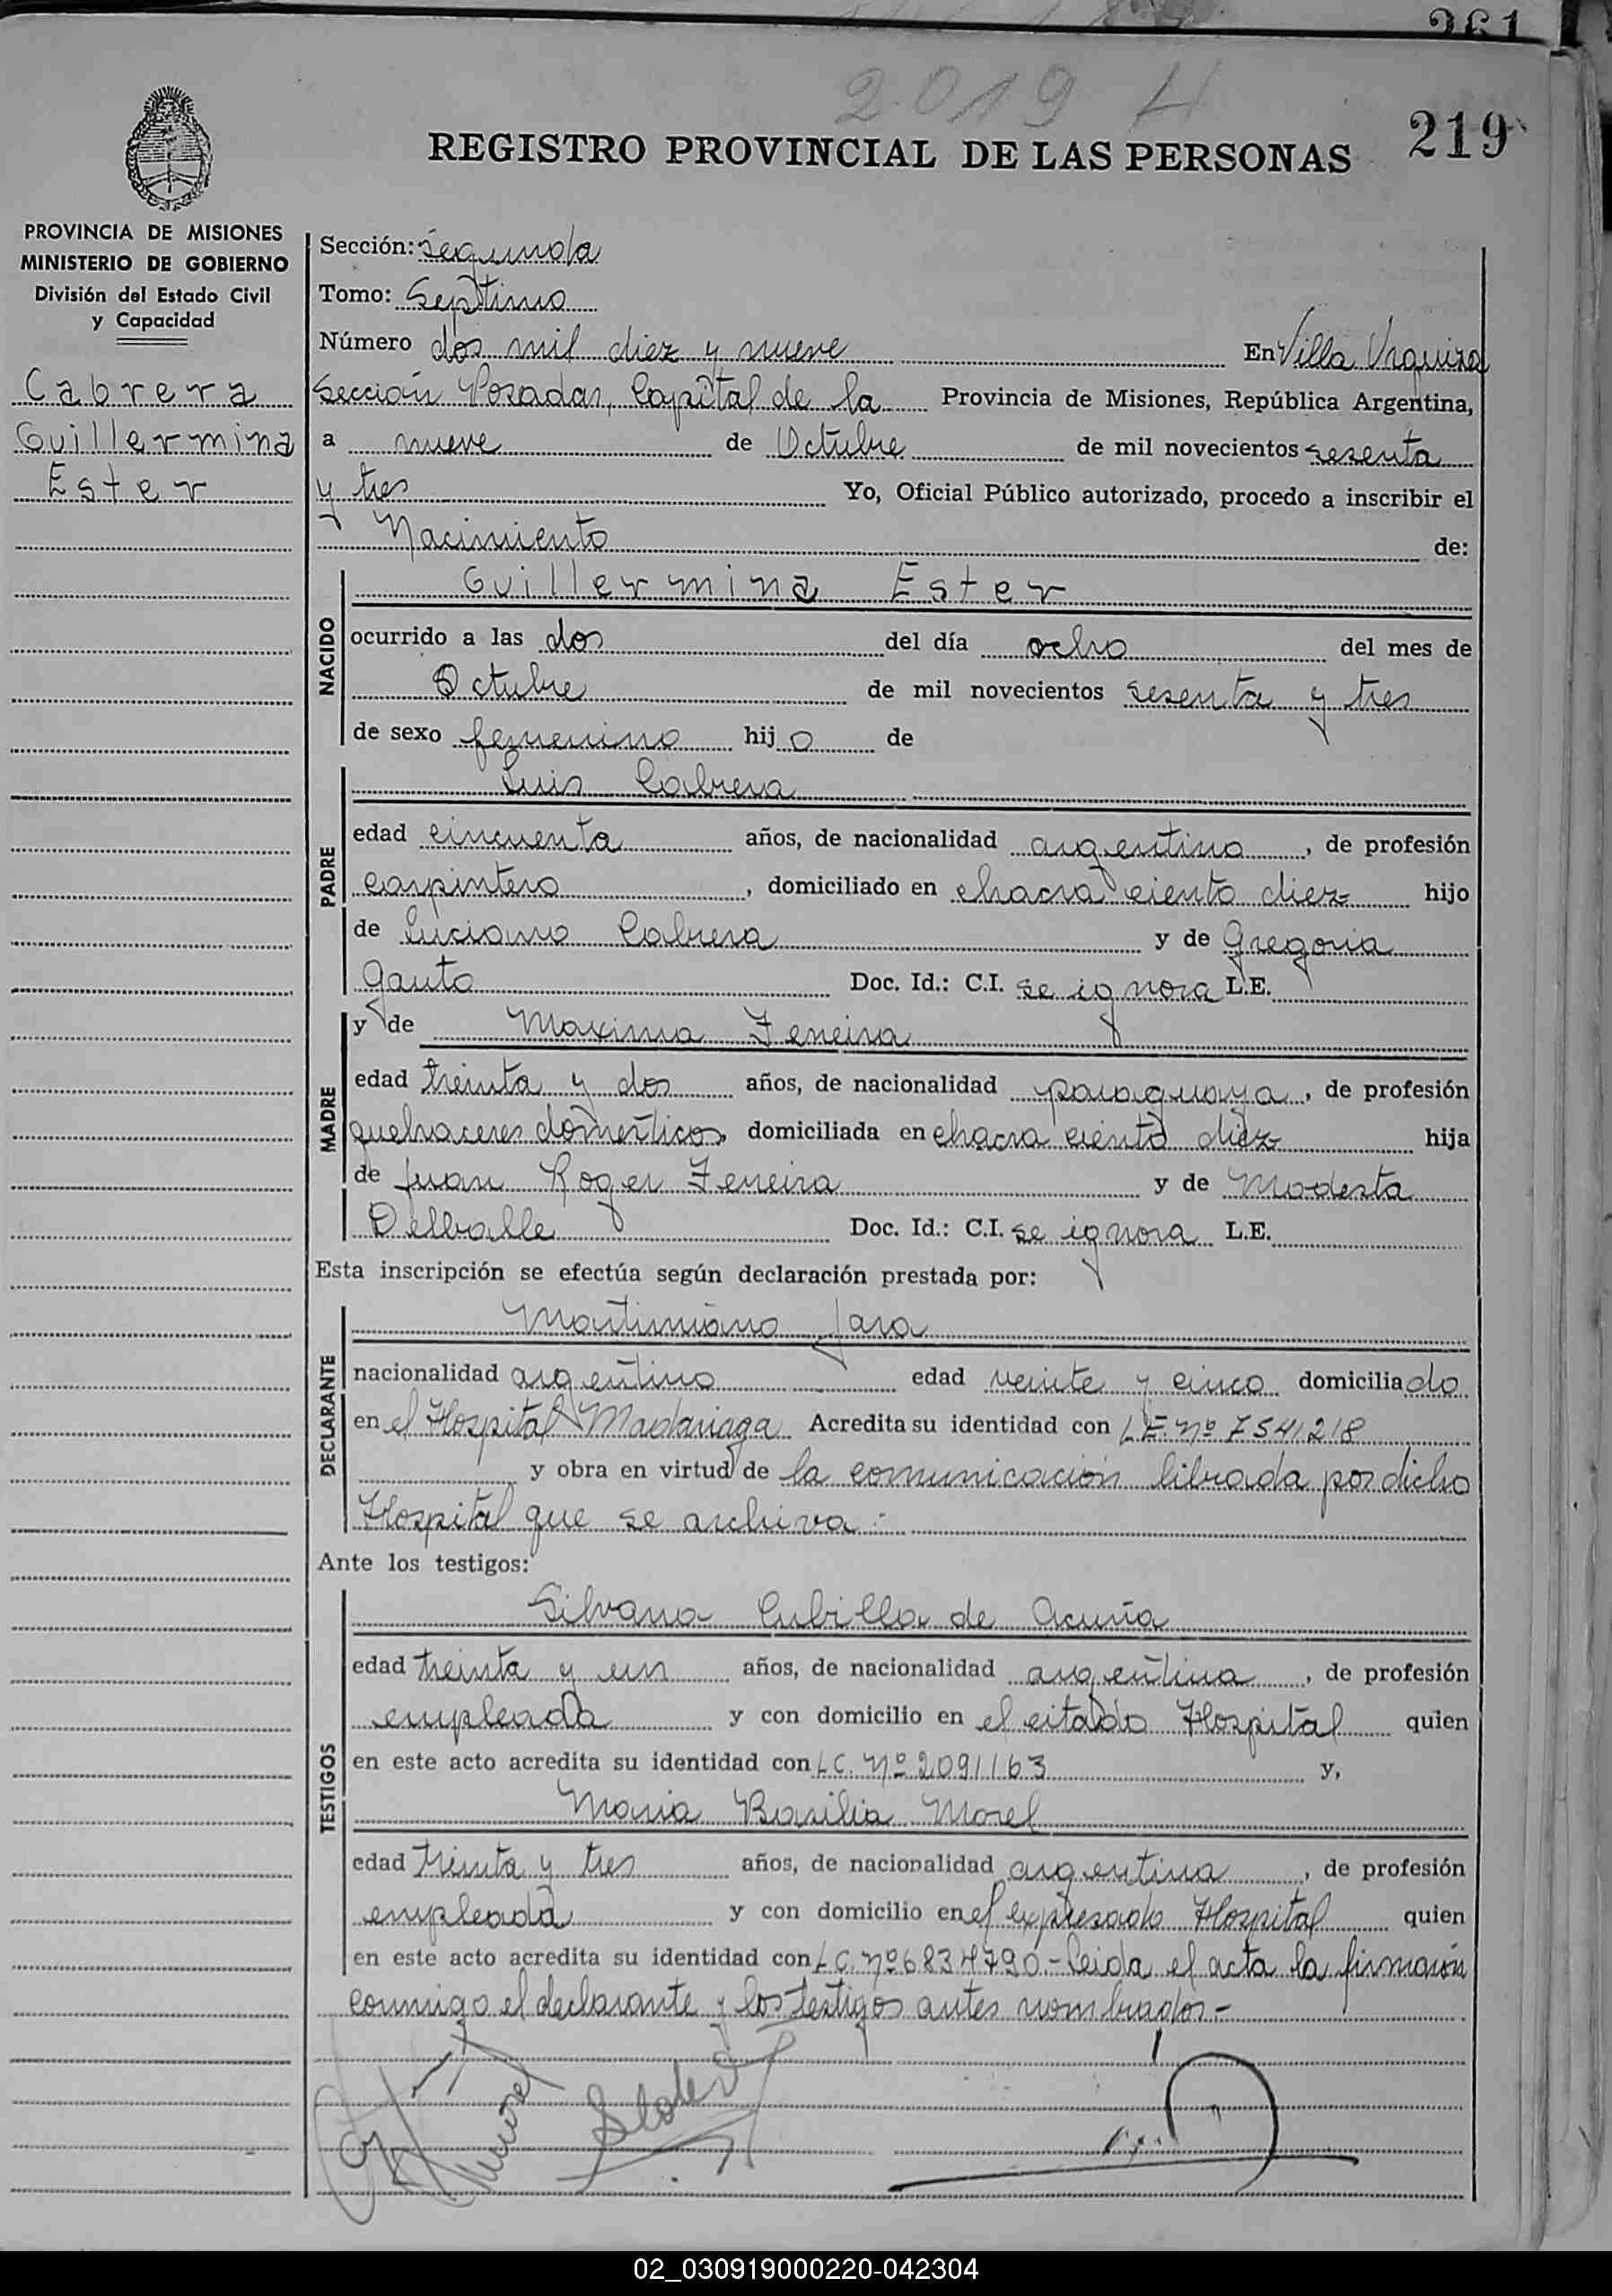 2019 H
REGISTRO PROVINCIAL DE LAS PERSONAS 219
PROVINCIA DE MISIONES
MINISTERIO DE GOBIERNO
División del Estado Civil
y Capacidad
Cabrera
Guillermina
Ester
Sección: Segunda
Tomo: Septimo
Número dos mil diez y nueve En Villa Urquiza
Sección Posadas, Capital de la Provincia de Misiones, República Argentina,
a nueve de Octubre de mil novecientos sesenta
y tres Yo, Oficial Público autorizado, procedo a inscribir el
Nacimiento de:
NACIDO
Guillermina Ester
ocurrido a las dos del día ocho del mes de
Octubre de mil novecientos sesenta y tres
de sexo femenino hijo de
PADRE
Luis Cabrera
edad cincuenta años, de nacionalidad argentino, de profesión
carpintero, domiciliado en chacra ciento diez hijo
de Luciano Cabrera y de Gregoria
Gauto Doc. Id.: C.I. se ignora L.E.
MADRE
y de Maxima Ferreira
edad treinta y dos años, de nacionalidad paraguaya, de profesión
quehaceres domésticos, domiciliada en chacra ciento diez hija
de Juan Roger Ferreira y de Modesta
Delvalle Doc. Id.: C.I. se ignora L.E.
Esta inscripción se efectúa según declaración prestada por:
DECLARANTE
Martimiano Jara
nacionalidad argentino edad veinte y cinco domiciliado
en el Hospital Madariaga Acredita su identidad con L.E. Nº 7541218
y obra en virtud de la comunicación librada por dicho
Hospital que se archiva.-
Ante los testigos:
TESTIGOS
Silvana Cubilla de Acuña
edad treinta y un años, de nacionalidad argentina, de profesión
empleada y con domicilio en el citado Hospital quien
en este acto acredita su identidad con L.C. Nº 2091163 y,
Maria Basilia Morel
edad treinta y tres años, de nacionalidad argentina, de profesión
empleada y con domicilio en el expresado Hospital quien
en este acto acredita su identidad con L.C. Nº 6834790.- Leida el acta la firmarón
conmigo el declarante y los testigos antes nombrados.-
02_030919000220-042304